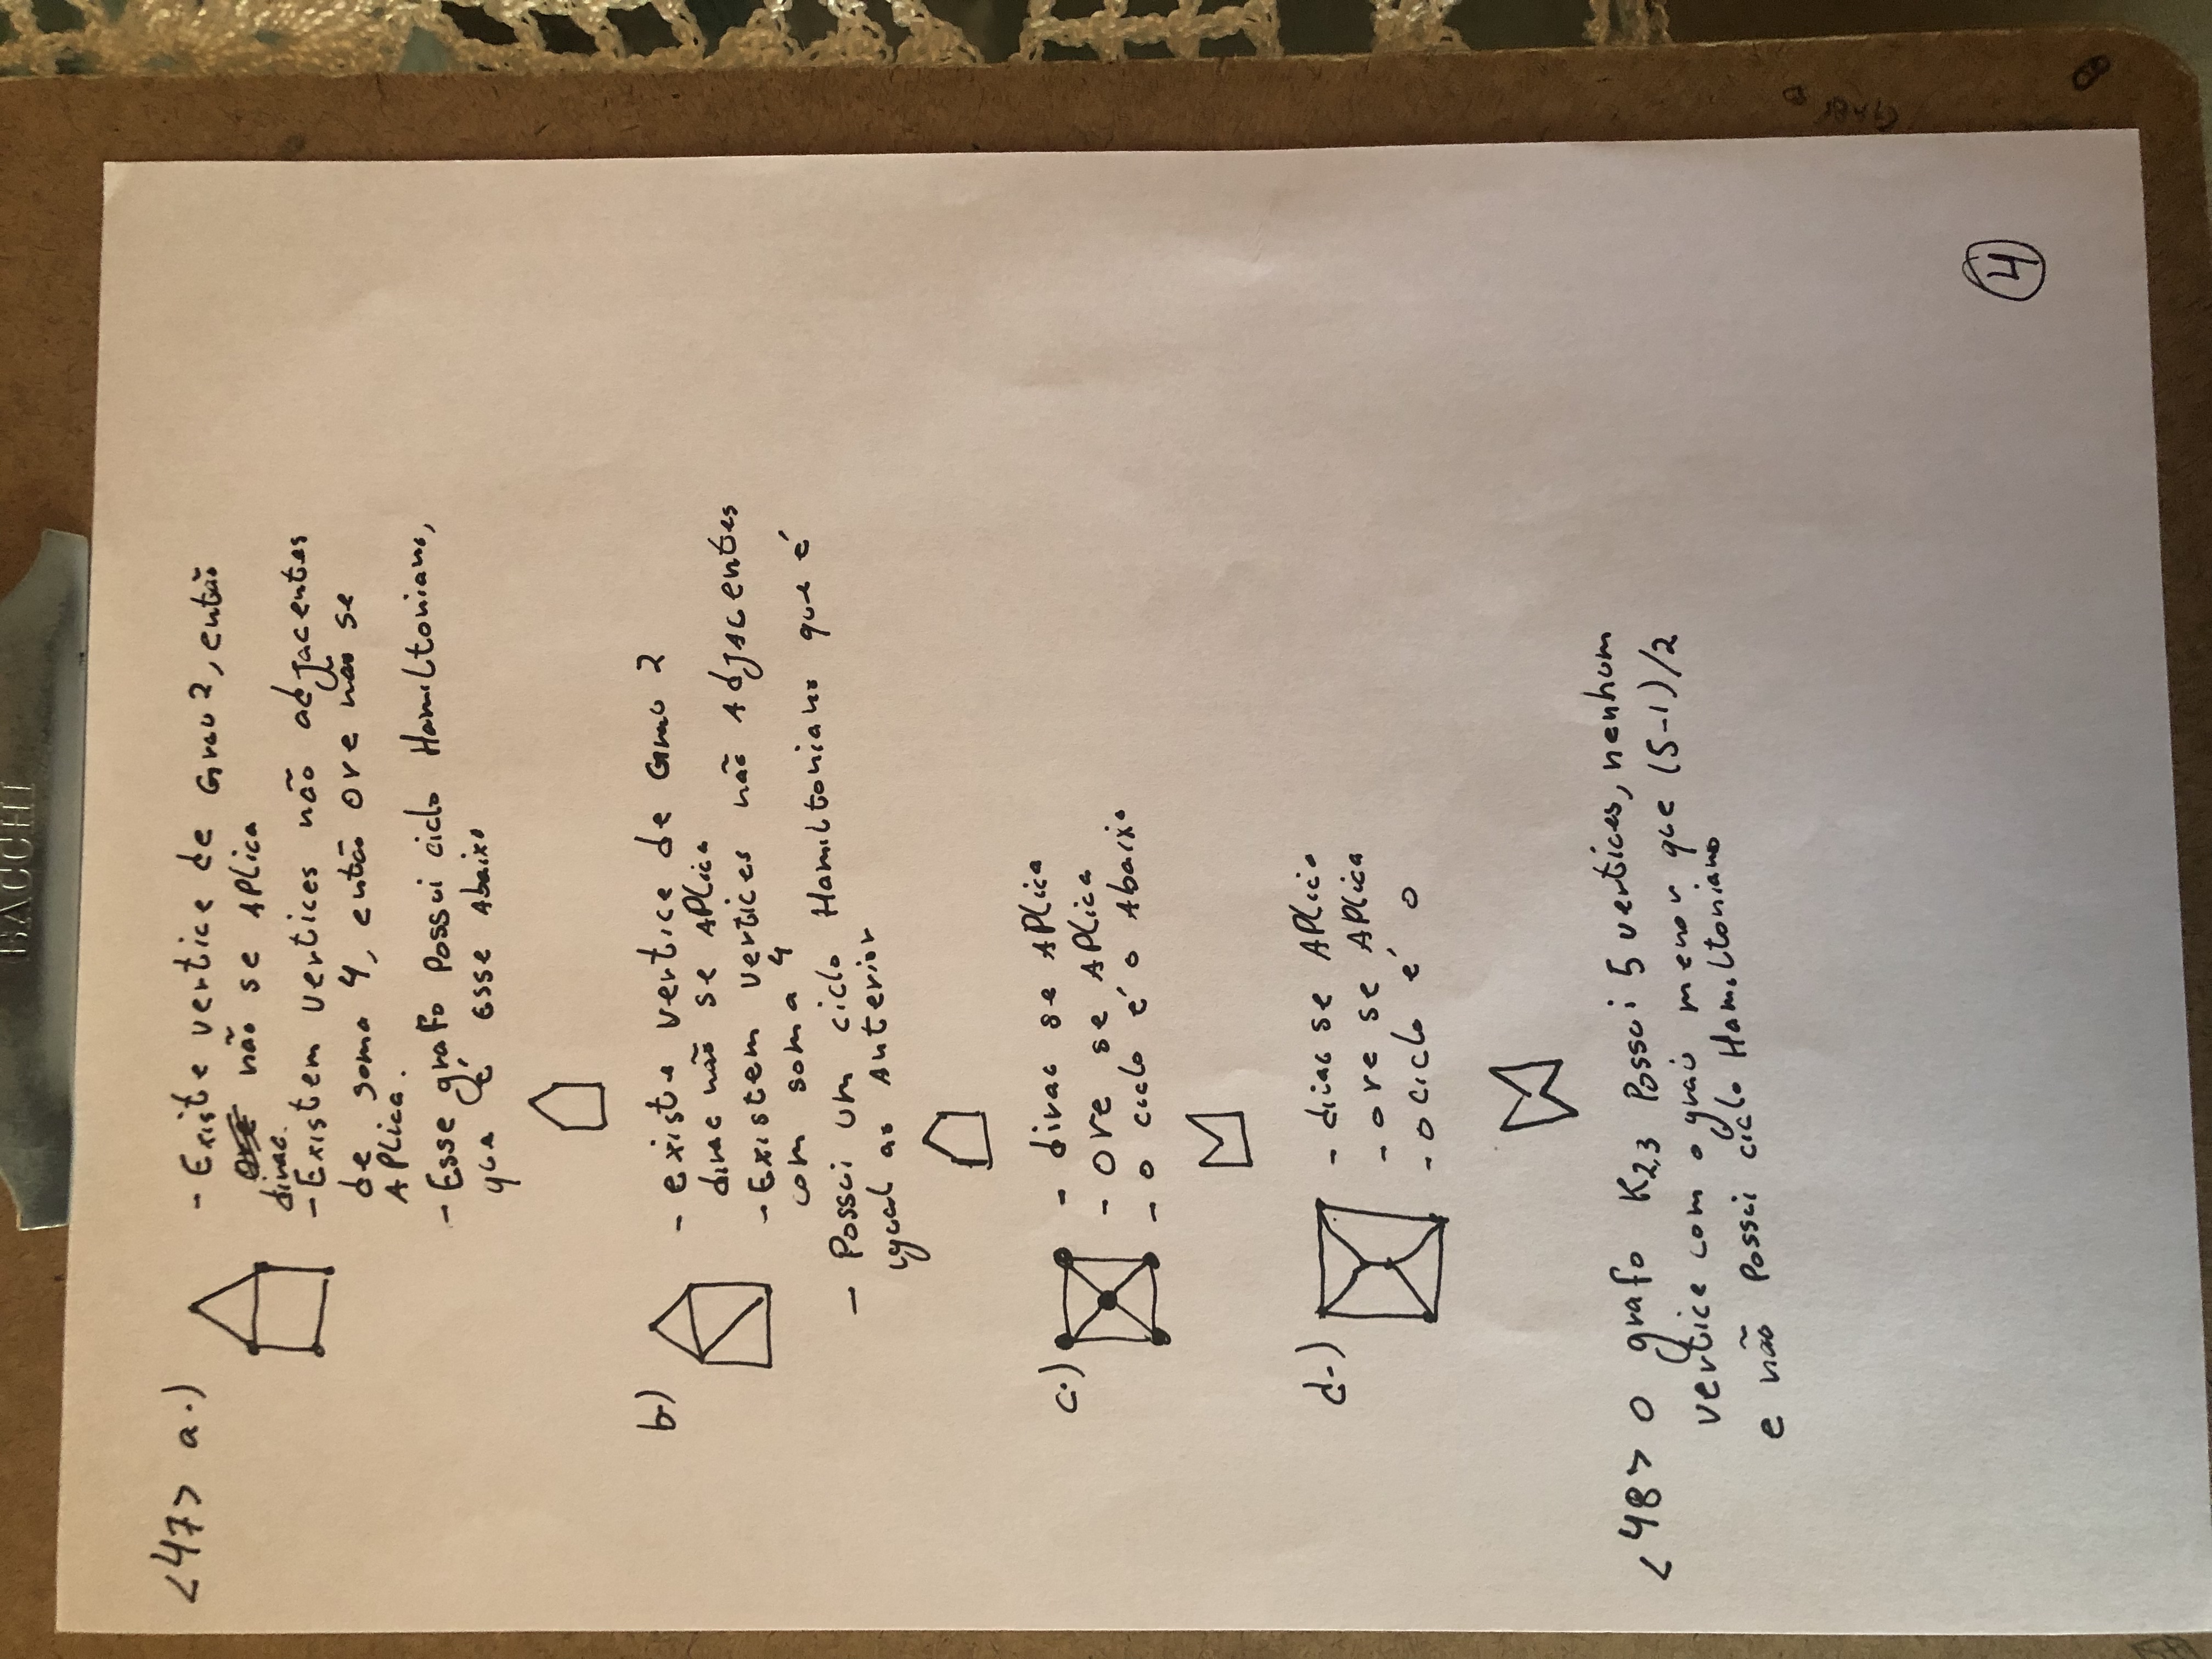 BACCHI
<47> a.)
- Existe vertice de Grau 2, então
não se APlica
dirac.
- Existem vertices não adjacentes
de soma 4, então Ore não se
APlica.
- Esse grafo Possui ciclo Hamiltoniano,
que é esse Abaixo
b)
- existe vertice de Grau 2
dirac não se APlica
- Existem vertices não Adjacentes
com soma 4
- Possui um ciclo Hamiltoniano que é
igual ao Anterior
c.)
- dirac se APlica
- ore se APlica
- o ciclo é o Abaixo
d.)
- dirac se APlica
- ore se APlica
- o ciclo é o
<48> O grafo K2,3 Possui 5 vertices, nenhum
vertice com o grau menor que (5-1)/2
e não Possui ciclo Hamiltoniano
4
8